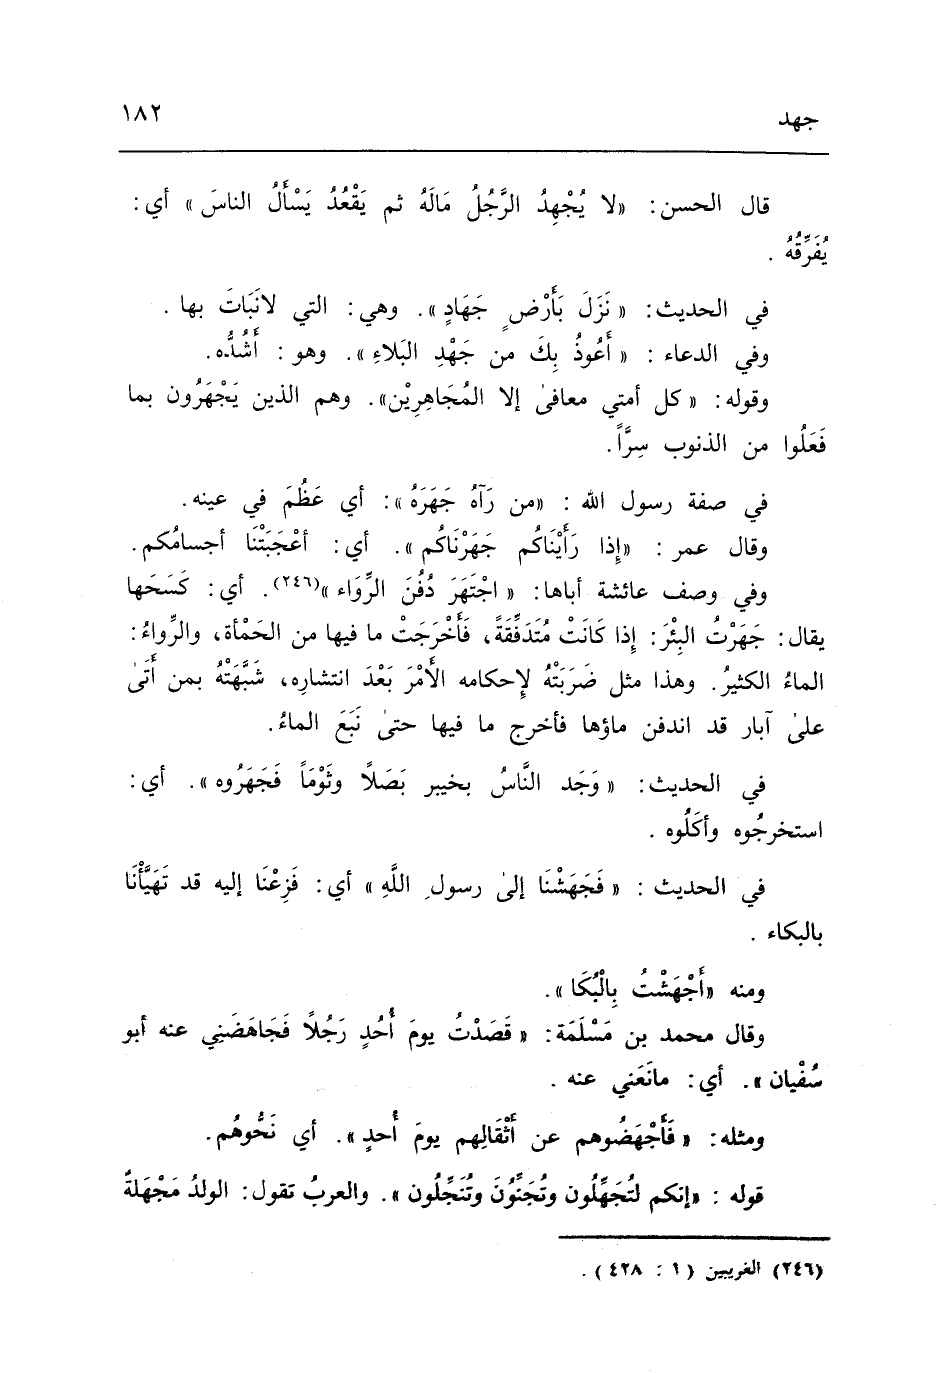 جهد
١٨٢
قال الحسن: «لا يُجْهِدُ الرَّجُلُ مَالَهُ ثم يَقْعُدُ يَسْأَلُ الناسَ» أي:
يُفَرِّقُهُ .
في الحديث: «نَزَلَ بَأَرْضٍ جَهَادٍ». وهي: التي لانَبَاتَ بها .
وفي الدعاء : «أَعُوذُ بِكَ من جَهْدِ البَلاءِ». وهو : أَشُدُّه.
وقوله: «كل أمتي معافىٰ إلا المُجَاهِرِيْن». وهم الذين يَجْهَرُون بما
فَعَلُوا من الذنوب سِرَّاً.
في صفة رسول الله : «من رَآهُ جَهَرَهُ»: أي عَظُمَ في عينه.
وقال عمر : «إِذا رَأَيْنَاكُم جَهَرْنَاكُم». أي: أعْجَبَتْنَا أجسامُكم.
وفي وصف عائشة أباها: «اجْتَهَرَ دُفُنَ الرِّوَاء»(٢٤٦). أي: كَسَحَها
يقال: جَهَرْتُ البِئْرَ: إِذا كَانَتْ مُتَدَفِّقَةً، فَأَخْرَجَتْ ما فيها من الحَمْأة، والرِّواءُ:
الماءُ الكثيرُ. وهذا مثل ضَرَبَتْهُ لإحكامه الأَمْرَ بَعْدَ انتشاره، شَبَّهَتْهُ بمن أَتَىٰ
علىٰ آبار قد اندفن ماؤها فأخرج ما فيها حتىٰ نَبَعَ الماءُ.
في الحديث: «وَجَد النَّاسُ بخيبر بَصَلاً وثَوْمَاً فَجَهَرُوه». أي:
استخرجُوه وأكَلُوه .
في الحديث : «فَجَهَشْنَا إلىٰ رسولِ اللَّهِ» أي: فَزِعْنَا إليه قد تَهَيَّأْنَا
بالبكاء .
ومنه «أَجْهَشْتُ بِالْبُكَا».
وقال محمد بن مَسْلَمَة: «قَصَدْتُ يومَ أُحُدٍ رَجُلاً فَجَاهَضَنِي عنه أبو
سُفْيان». أي: مانَعَني عنه .
ومثله: «فَأَجْهَضُوهم عن أَثْقَالِهم يومَ أُحدٍ». أي نَحُّوهُم.
قوله : «إنكم لتُجَهِّلُون وتُجَبِّنُونَ وتُبَخِّلُون». والعربُ تقول: الولدُ مَجْهَلةً
(٢٤٦) الغريبين (١ : ٤٢٨) .